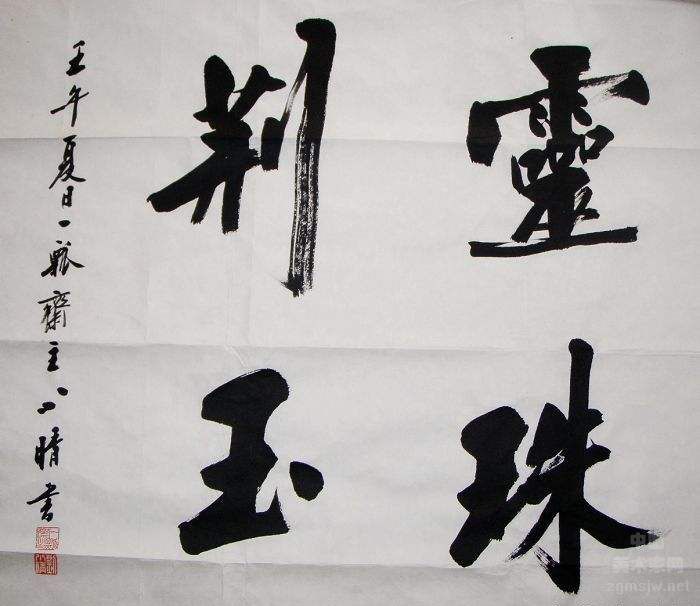 靈珠
荆玉
壬午夏日一瓢齋主小晴书
美术志网
zgmsjw.net